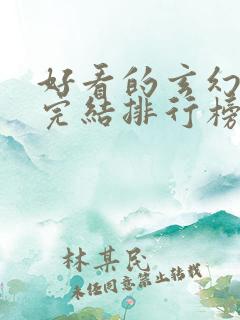 好看的玄幻
完结排行榜
林某民
未经同意禁止转载